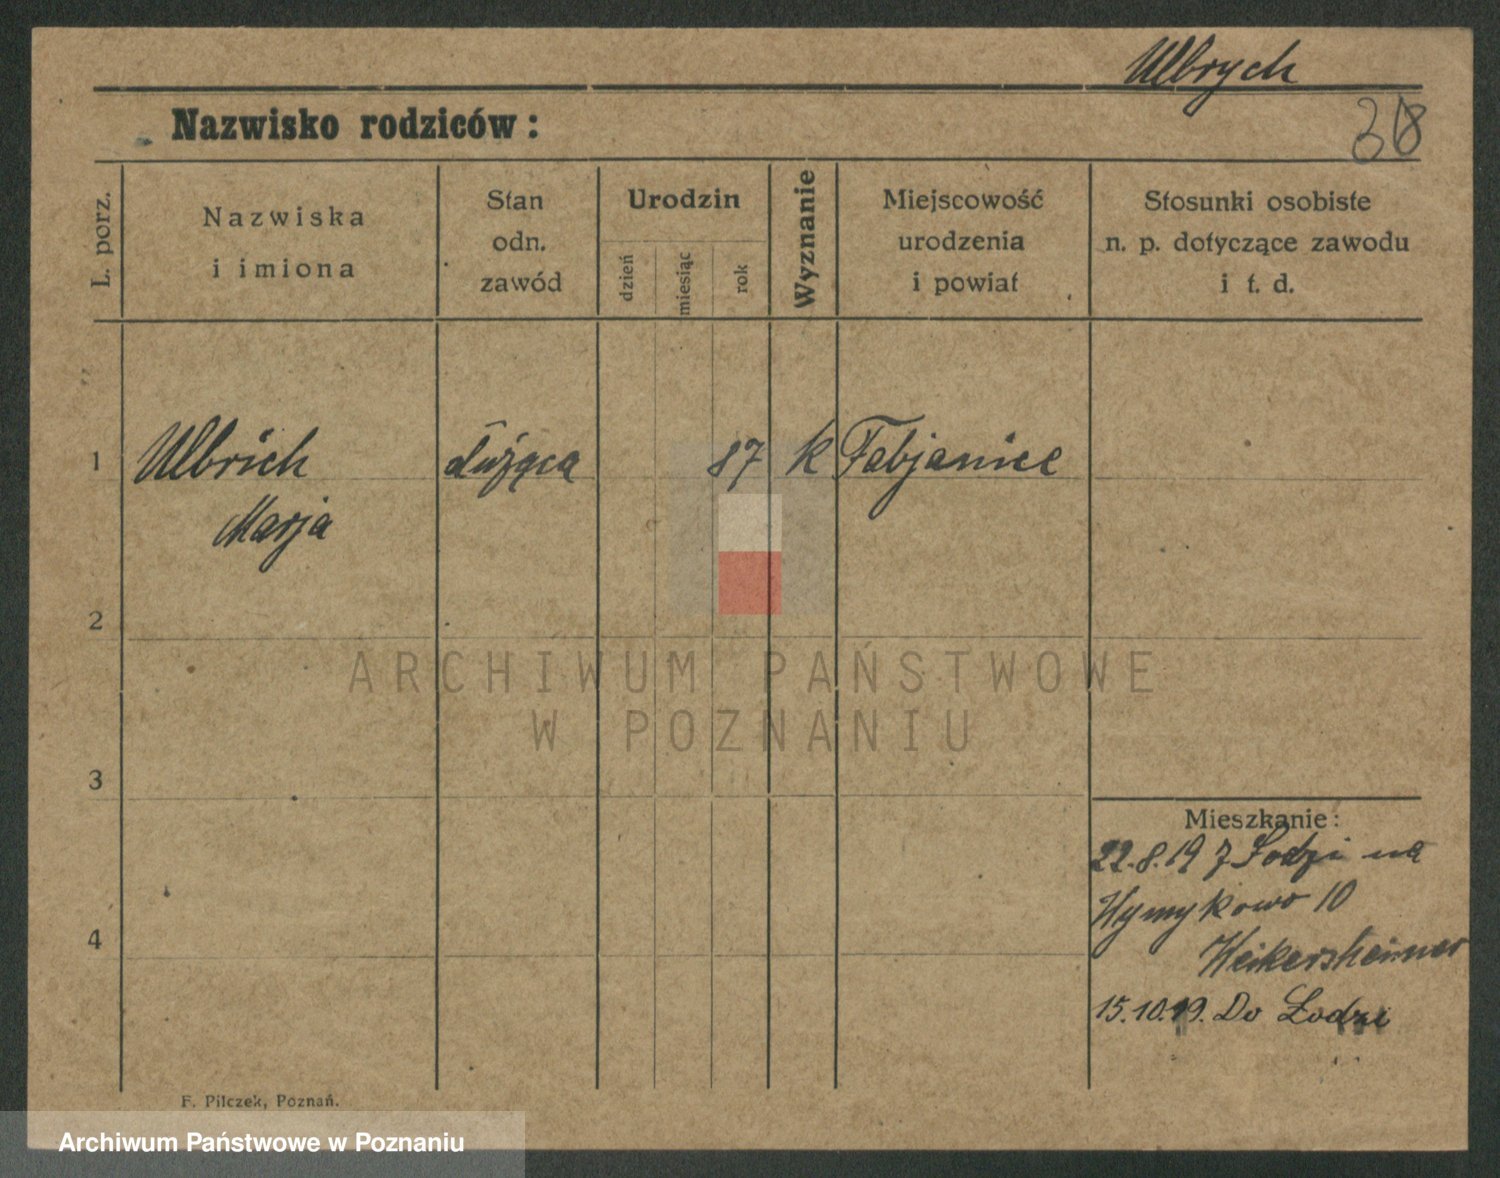 Ulbrych
Nazwisko rodziców:
L. porz.
Nazwiska
i imiona
Stan
odn.
zawód
Urodzin
dzień
miesiąc
rok
Wyznanie
Miejscowość
urodzenia
i powiat
Stosunki osobiste
n. p. dotyczące zawodu
i t. d.
1
Ulbrich
Marja
87
k
Fabjanice
2
3
4
Mieszkanie:
22.8.19 z Łodzi na
10
Heikersheimer
15.10.19. Do Łodzi
F. Pilczek, Poznań.
ARCHIWUM PAŃSTWOWE
W POZNANIU
Archiwum Państwowe w Poznaniu